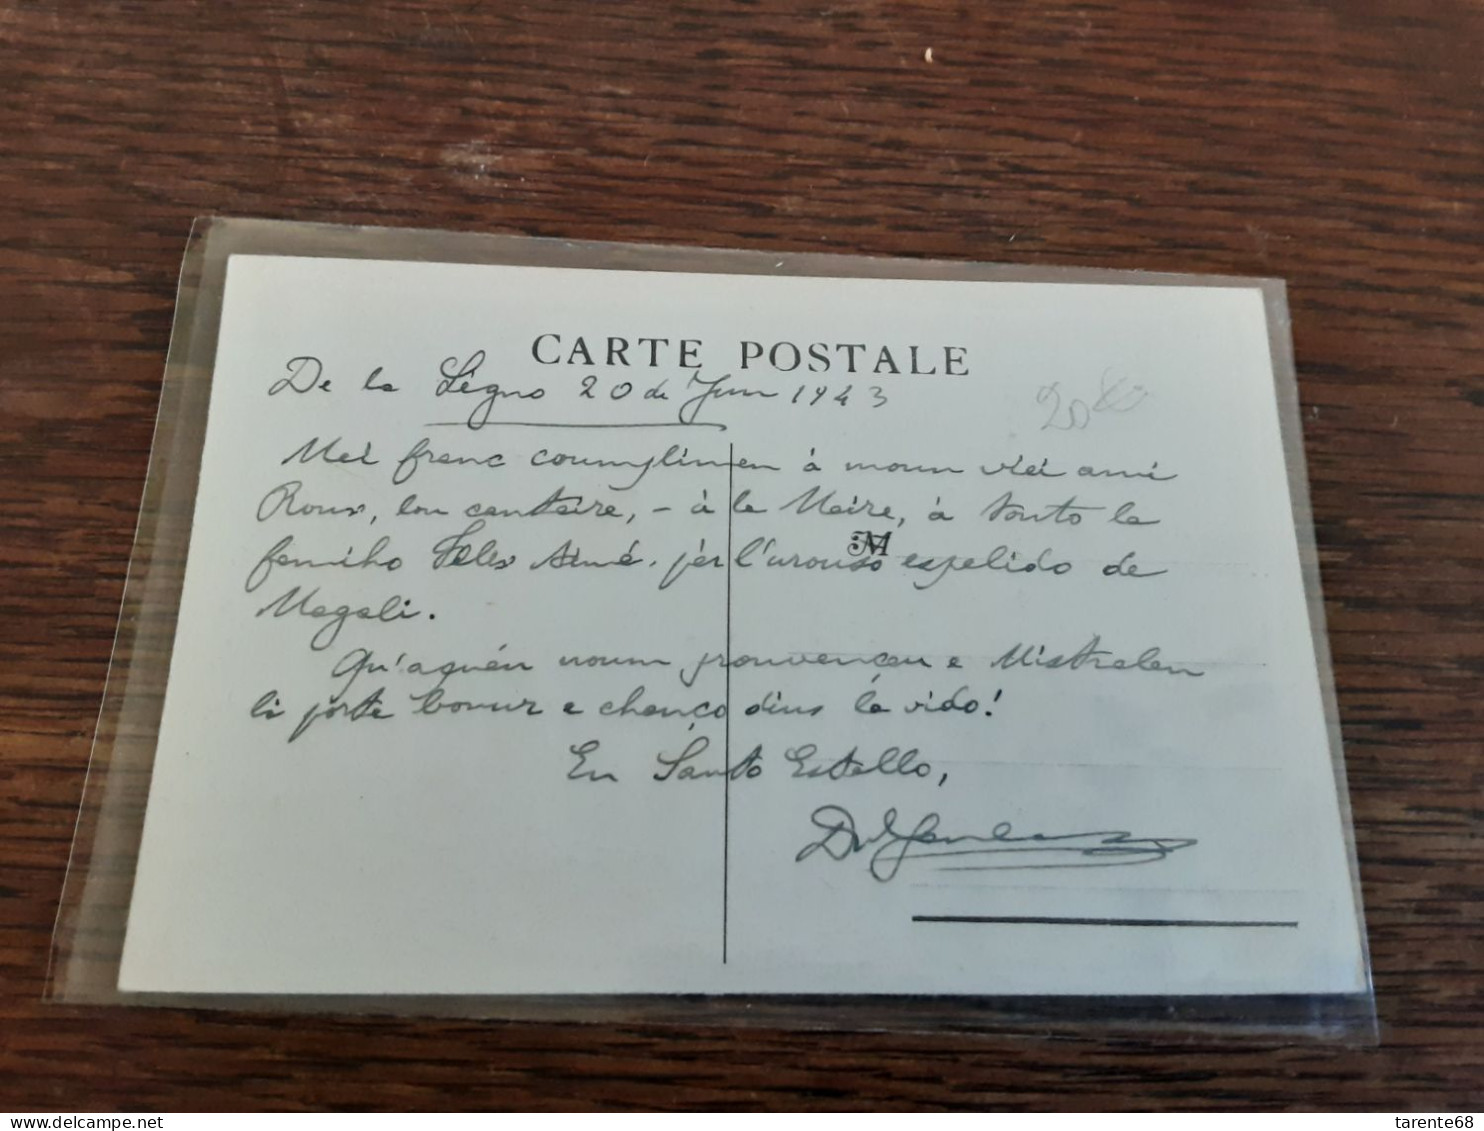 CARTE POSTALE
De la Légno 20 de Jun 1943
20
Mei franc coumplimen à moun viei ami
Roux, lou cantaire, - à la Maire, à touto la
famiho Félix Aimé, pèr l'urouso espelido de
M
Magali.
Qu'aquéu noum prouvençau e Mistralen
li porte bonur e chanço dins la vido!
En Santo Estello,
tarente68